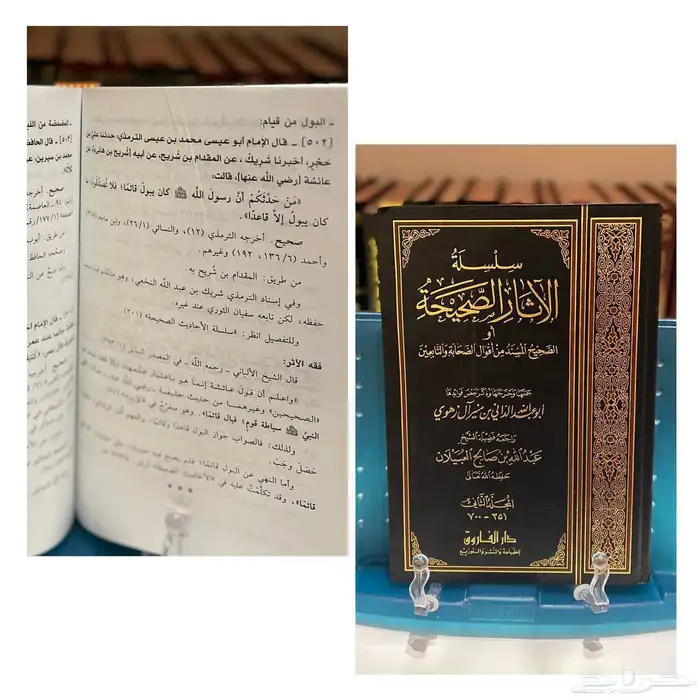 ـ البول من قيام:
[٥٠٢] ـ قال الإمام أبو عيسى محمد بن عيسى الترمذي: حدثنا علي بن
حُجْر، أخبرنا شريك، عن المقدام بن شُريح، عن أبيه [شريح بن هانئ]، عن
عائشة [رضي الله عنها]، قالت:
«مَنْ حَدَّثَكُمْ أنَّ رسولَ اللَّه ﷺ كان يبولُ قائمًا؛ فلا تُصَدِّقُوه، ما
كان يبولُ إلَّا قاعدًا».
صحيح. أخرجه الترمذي (١٢)، والنسائي (٢٦/١)، وابن ماجه
وأحمد (١٣٦/٦، ١٩٢) وغيرهم.
من طريق: المقدام بن شُريح به.
وفي إسناد الترمذي شريك بن عبد اللَّه النخعي، وهو متكلم
حفظه، لكن تابعه سفيان الثوري عند غيره.
وللتفصيل انظر: «سلسلة الأحاديث الصحيحة» (٢٠١).
فقه الأثر:
قال الشيخ الألباني ـ رحمه اللَّه ـ في المصدر السابق
«واعلم أن قول عائشة إنما هو باعتبار علمها، وإلا فقد
«الصحيحين» وغيرهما من حديث حذيفة
النبيُّ ﷺ سباطة قومٍ؛ فبال قائمًا».
ولذلك؛ فالصواب جواز البول قاعدًا وقائمًا، والمهم أمن الرشاش
حَصَلَ وجَبَ.
وأما النهي عن البول قائمًا؛ فلم يصح فيه
قائمًا»، وقد تكلَّمْتُ عليه في «الأحاديث الضعيفة»
ـ المضمضة من اللبن
[٥٠٣] ـ قال الحافظ
محمد بن سيرين، عن
صحيح. أخرجه
من طريق: أيوب
وصححه الحافظ
قال الإمام
سِلسِلَةُ
الآثَارِ الصَّحِيحَةُ
أو
الصَّحِيحُ المُسنَدُ مِنْ أقوَالِ الصَّحَابَةِ والتَّابِعِين
جمعَهَا وخرّجهَا وذكر بَعض فوَائدهَا
أبو عبد الله الداني بن منير آل زهوي
راجعه فضيلة الشيخ
عبد الله بن صالح العبيلان
حفظه الله تعالى
المجلد الثاني
٣٥١ - ٧٠٠
دار الفاروق
للطباعة والنشر والتوزيع
حراج